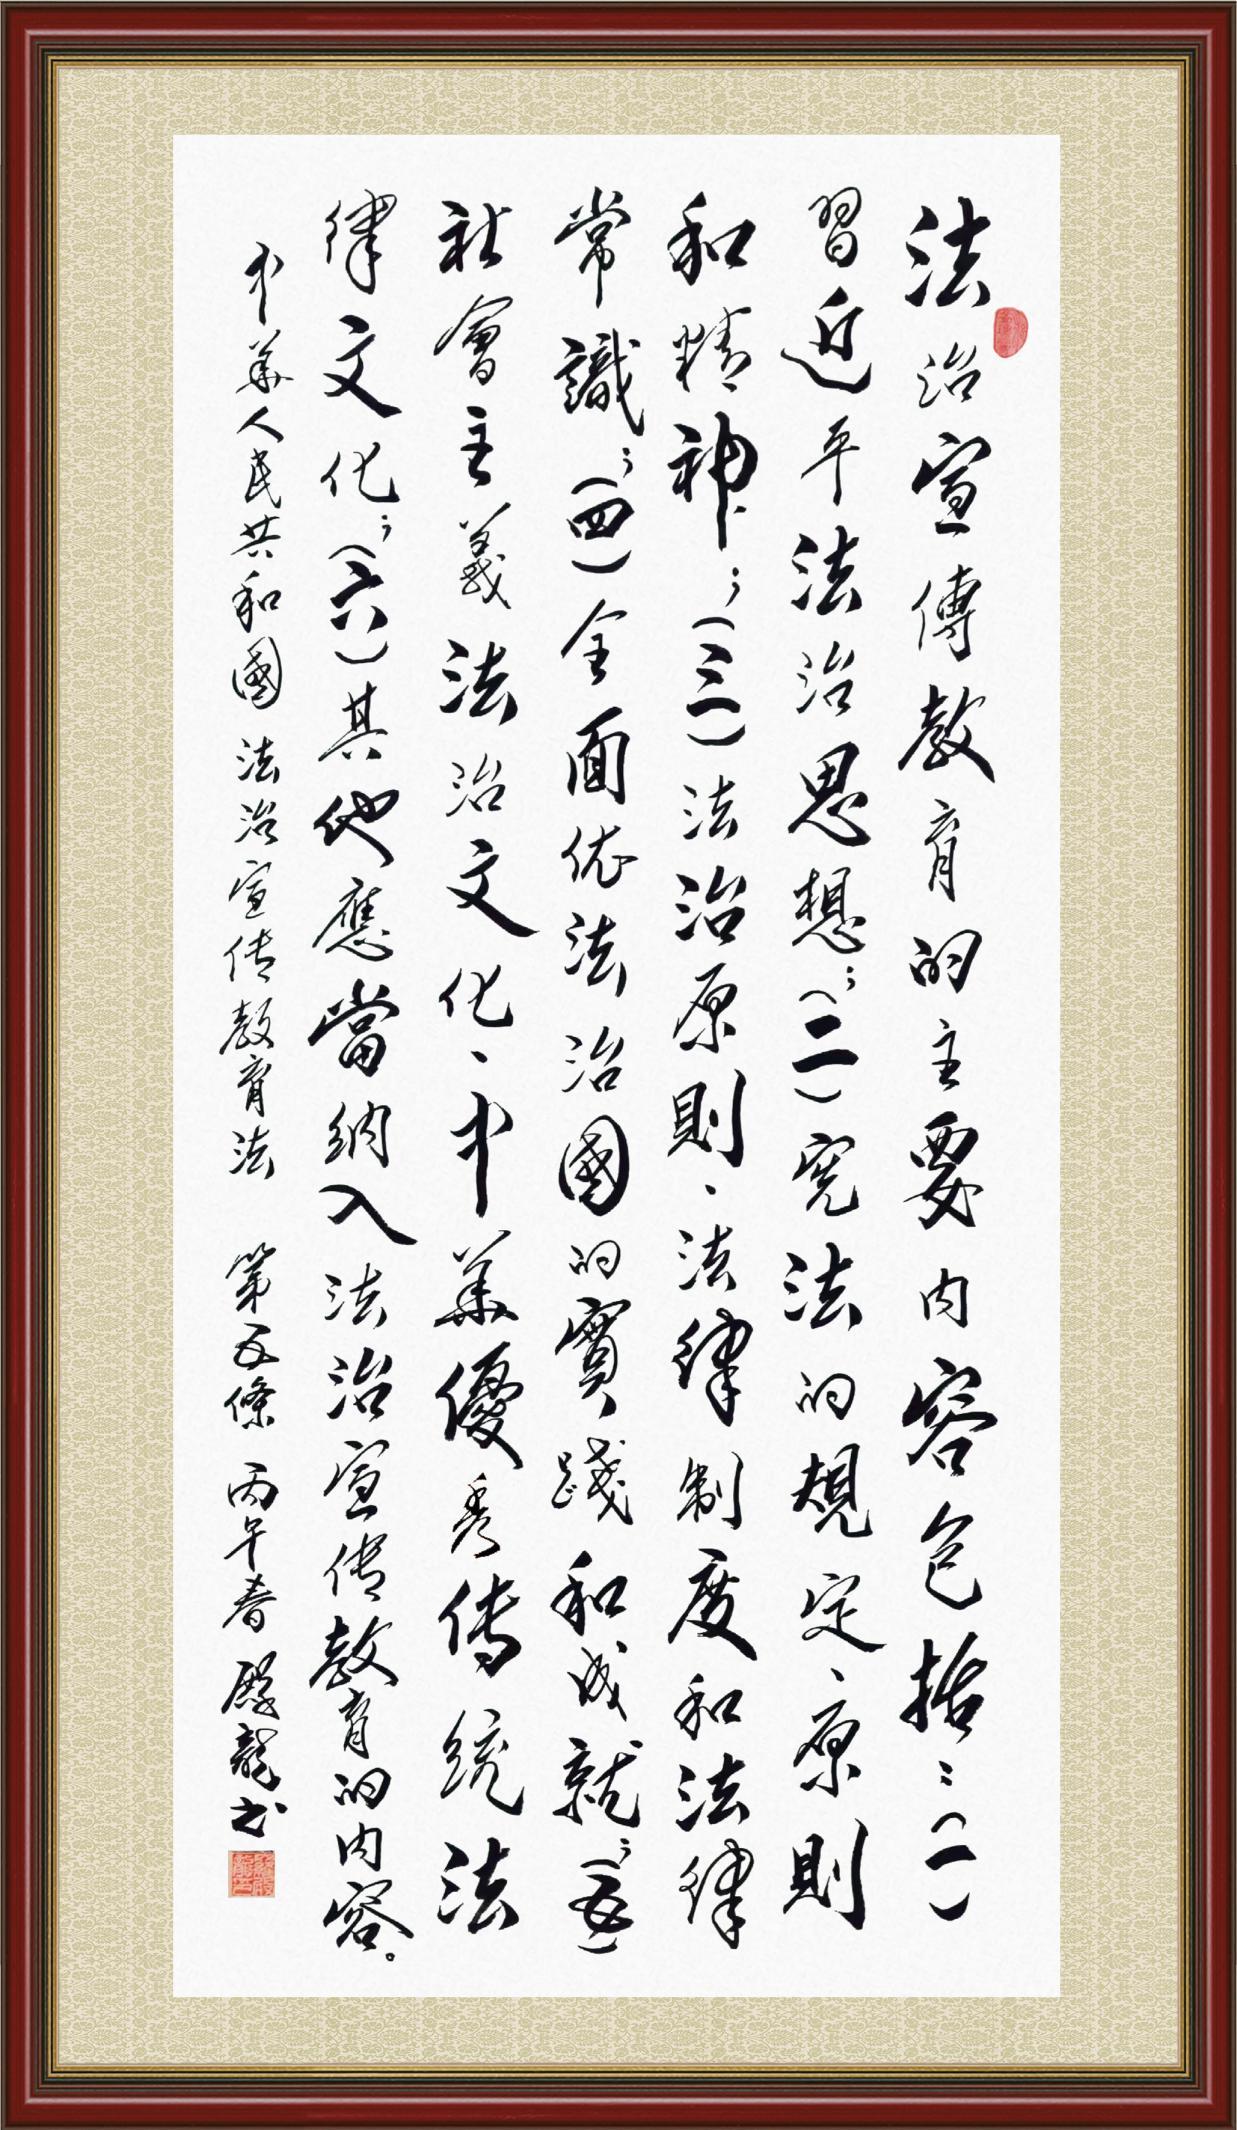 法治宣傳教育的主要内容包括：（一）
習近平法治思想；（二）宪法的規定、原則
和精神；（三）法治原則、法律制度和法律
常識；（四）全面依法治國的實踐和成就；（五）
社會主義法治文化、中華優秀传統法
律文化；（六）其他應當納入法治宣传教育的内容。
中華人民共和國 法治宣传教育法 第五條 丙午春 殿龍书